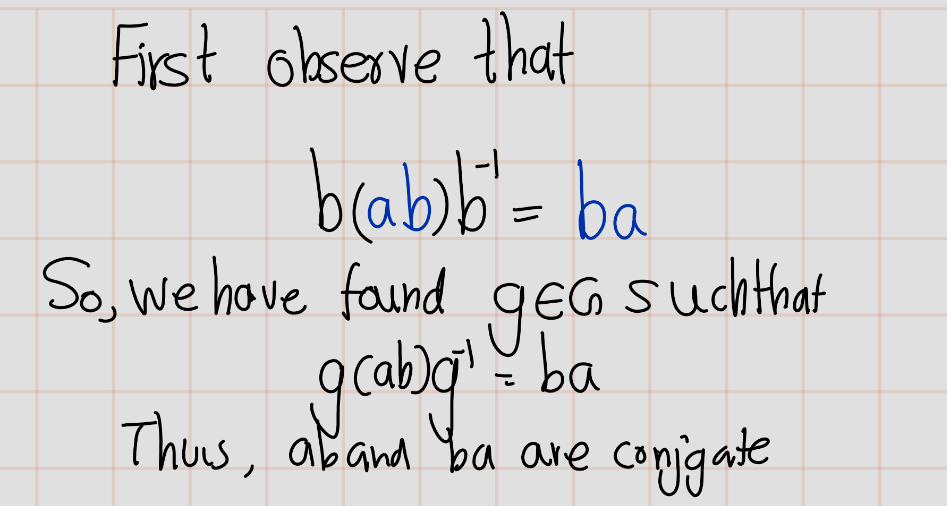 First observe that
b(ab)b⁻¹ = ba
So, we have found g∈G such that
g(ab)g⁻¹ = ba
Thus, ab and ba are conjgate